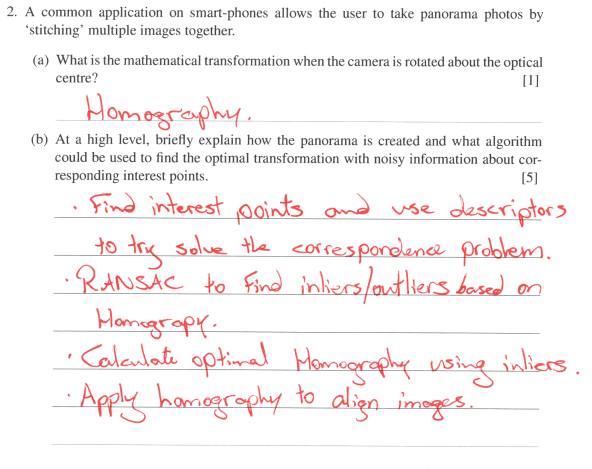 2. A common application on smart-phones allows the user to take panorama photos by
‘stitching’ multiple images together.
(a) What is the mathematical transformation when the camera is rotated about the optical
centre? [1]
Homography.
(b) At a high level, briefly explain how the panorama is created and what algorithm
could be used to find the optimal transformation with noisy information about cor-
responding interest points. [5]
· Find interest points and use descriptors
to try solve the correspondence problem.
· RANSAC to find inliers/outliers based on
Homograpy.
· Calculate optimal Homography using inliers.
· Apply homography to align images.